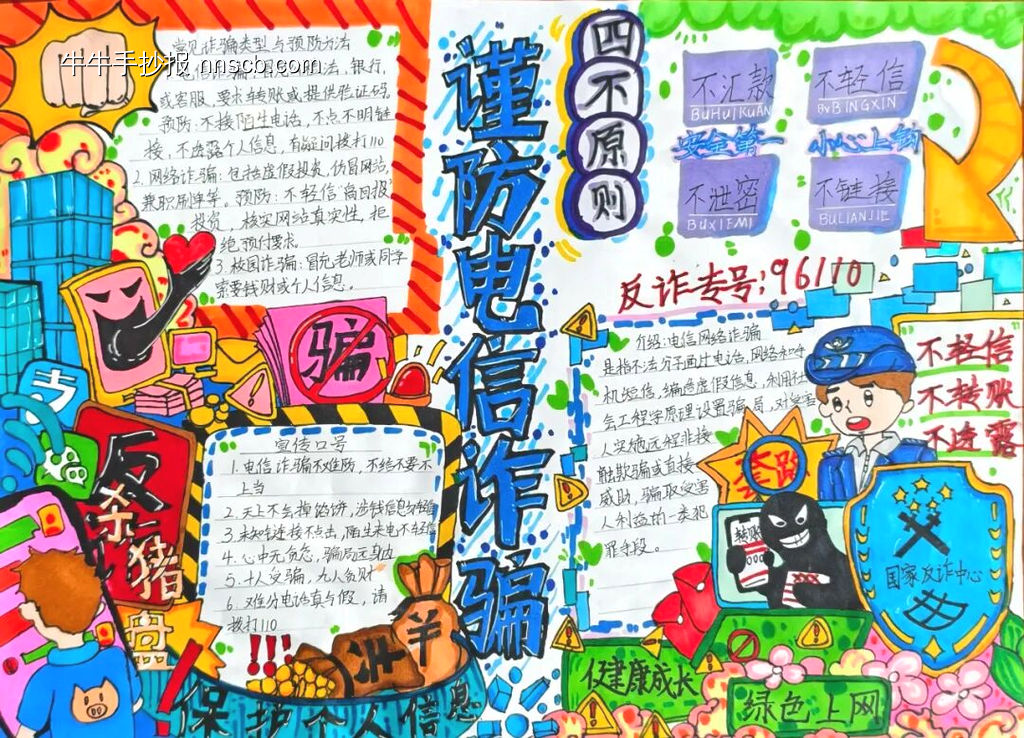 牛牛手抄报 nnscb.com
常见诈骗类型与预防方法
法, 银行,
或客服, 要求转账或提供验证码
预防: 不接陌生电话, 不点不明链
接, 不透露个人信息, 有疑问拨打110
2. 网络诈骗: 包括虚假投资, 仿冒网站,
兼职刷单等。预防: 不轻信"高回报"
投资, 核实网站真实性, 拒
绝预付要求。
3. 校园诈骗: 冒充老师或同学
索要钱财或个人信息。
骗
支
反
杀
猪
盘
宣传口号
1. 电信诈骗不难防, 不给不要不
上当
2. 天上不会掉馅饼, 涉钱信息
3. 未知链接不点击, 陌生来电不轻信
4. 心中无贪念, 骗局远身边
5. 十人受骗, 九人贪财
6. 难分电话真与假, 请
拨打110
!!!
羊
保护个人信息
谨防电信诈骗
四不原则
不汇款
BUHUIKUAN
不轻信
BUBINGXIN
安全第一
小心上钩
不泄密
BUXIEMI
不链接
BULIANJIE
反诈专号: 96110
介绍: 电信网络诈骗
是指不法分子通过电话, 网络和呼
机短信, 编造虚假信息, 利用社
会工程学原理设置骗局, 对受害
人实施远程非接
触欺骗或直接
威胁, 骗取受害
人利益的一类犯
罪手段。
套路
转账
不轻信
不转账
不透露
国家反诈中心
健康成长
绿色上网